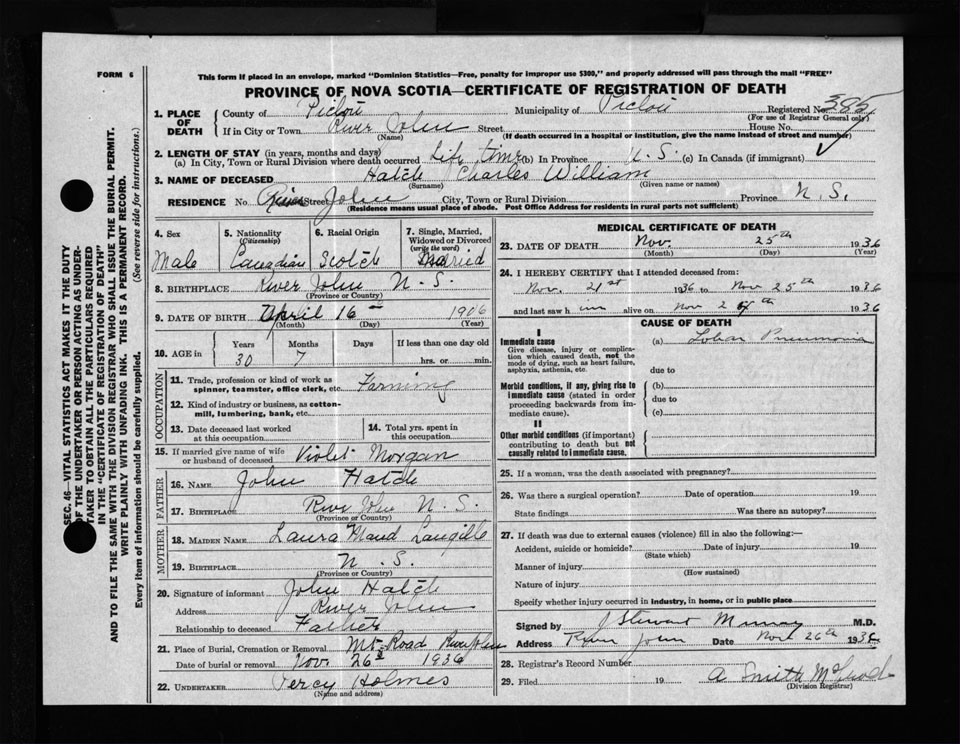 FORM 6
This form if placed in an envelope, marked "Dominion Statistics—Free, penalty for improper use $300," and properly addressed will pass through the mail "FREE"
PROVINCE OF NOVA SCOTIA—CERTIFICATE OF REGISTRATION OF DEATH
1. PLACE OF DEATH
County of Pictou Municipality of Pictou Registered No. 385
(For use of Registrar General only)
If in City or Town River John Street House No.
(Name) (If death occurred in a hospital or institution, give the name instead of street and number)
2. LENGTH OF STAY (in years, months and days)
(a) In City, Town or Rural Division where death occurred Life time (b) In Province N.S. (c) In Canada (if immigrant)
3. NAME OF DECEASED Hatch Charles William
(Surname) (Given name or names)
RESIDENCE No. River Street John City, Town or Rural Division Province N.S.
(Residence means usual place of abode. Post Office Address for residents in rural parts not sufficient)
4. Sex
Male
5. Nationality
(Citizenship)
Canadian
6. Racial Origin
Scotch
7. Single, Married, Widowed or Divorced
(write the word)
Married
8. BIRTHPLACE River John N.S.
(Province or Country)
9. DATE OF BIRTH April 16th 1906
(Month) (Day) (Year)
10. AGE in Years Months Days If less than one day old
30 7 hrs. or min.
OCCUPATION
11. Trade, profession or kind of work as spinner, teamster, office clerk, etc. Farming
12. Kind of industry or business, as cotton-mill, lumbering, bank, etc.
13. Date deceased last worked at this occupation
14. Total yrs. spent in this occupation
15. If married give name of wife or husband of deceased Violet Morgan
FATHER
16. NAME John Hatch
17. BIRTHPLACE River John N.S.
(Province or Country)
MOTHER
18. MAIDEN NAME Laura Maud Langille
19. BIRTHPLACE N.S.
(Province or Country)
20. Signature of informant John Hatch
Address River John
Relationship to deceased Father
21. Place of Burial, Cremation or Removal Mt. Road River John
Date of burial or removal Nov. 26 1936
22. UNDERTAKER Percy Holmes
(Name and address)
MEDICAL CERTIFICATE OF DEATH
23. DATE OF DEATH Nov. 25th 1936
(Month) (Day) (Year)
24. I HEREBY CERTIFY that I attended deceased from:
Nov. 21st 1936 to Nov 25th 1936
and last saw him alive on Nov 2 th 1936
CAUSE OF DEATH
I
Immediate cause
Give disease, injury or complication which caused death, not the mode of dying, such as heart failure, asphyxia, asthenia, etc.
(a) Lobar Pneumonia
due to
Morbid conditions, if any, giving rise to immediate cause (stated in order proceeding backwards from immediate cause).
(b)
due to
(c)
II
Other morbid conditions (if important) contributing to death but not causally related to immediate cause.
25. If a woman, was the death associated with pregnancy?
26. Was there a surgical operation? Date of operation 19
State findings Was there an autopsy?
27. If death was due to external causes (violence) fill in also the following:—
Accident, suicide or homicide? Date of injury 19
(State which)
Manner of injury
(How sustained)
Nature of injury
Specify whether injury occurred in industry, in home, or in public place
Signed by J Stewart Murray M.D.
Address River John Date Nov 26th 1936
28. Registrar's Record Number
29. Filed 19 A Smith McLeod
(Division Registrar)
SEC. 46—VITAL STATISTICS ACT MAKES IT THE DUTY
OF THE UNDERTAKER OR PERSON ACTING AS UNDER-
TAKER TO OBTAIN ALL THE PARTICULARS REQUIRED
IN THE "CERTIFICATE OF REGISTRATION OF DEATH"
AND TO FILE THE SAME WITH THE DIVISION REGISTRAR WHO SHALL ISSUE THE BURIAL PERMIT.
WRITE PLAINLY WITH UNFADING INK. THIS IS A PERMANENT RECORD.
Every item of information should be carefully supplied. (See reverse side for instructions.)